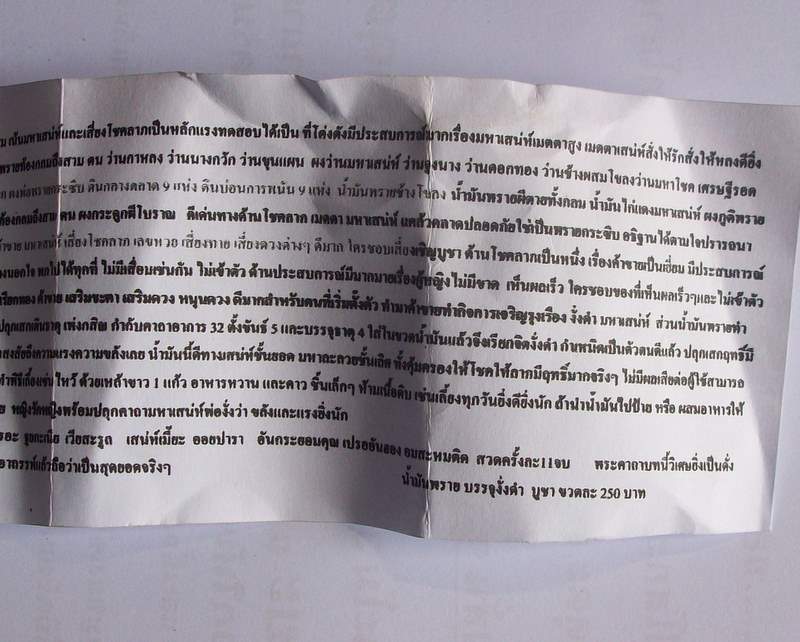 เน้นมหาเสน่ห์และเสี่ยงโชคลาภเป็นหลักแรงทดสอบได้เป็น ที่โด่งดังมีประสบการณ์มากเรื่องมหาเสน่ห์เมตตาสูง เมตตาเสน่ห์สั่งให้รักสั่งให้หลงดียิ่ง
พรายท้องกลมถึงสาม ตน ว่านกาหลง ว่านนางกวัก ว่านขุนแผน ผงว่านมหาเสน่ห์ ว่านจูงนาง ว่านดอกทอง ว่านช้างผสมโขลงว่านมหาโชค เศรษฐีรอด
พรายกระซิบ ดินกลางตลาด 9 แห่ง ดินบ่อนการพนัน 9 แห่ง น้ำมันพรายช้างโขลง น้ำมันพรายผีตายทั้งกลม น้ำมันไก่แดงมหาเสน่ห์ ผงภูติพราย
ท้องกลมถึงสาม ตน ผงกระลูกผีโบราณ ดีเด่นทางด้านโชคลาภ เมตตา มหาเสน่ห์ แคล้วคลาดปลอดภัย ใช่เป็นพรายกระซิบ อธิฐานได้ตามใจปรารถนา
ค้าขาย มหาเสน่ห์ เสี่ยงโชคลาภ เลขหวย เสี่ยงทาย เสี่ยงดวงต่างๆ ดีมาก ใครชอบเสี่ยงเชิญบูชา ด้านโชคลาภเป็นหนึ่ง เรื่องค้าขายเป็นเยี่ยม มีประสบการณ์
พกไปได้ทุกที่ ไม่มีเสื่อมเช่นกัน ไม่เข้าตัว ด้านประสบการณ์มีมากมายเรื่องผู้หญิงไม่มีขาด เห็นผลเร็ว ใครชอบของที่เห็นผลเร็วๆและไม่เข้าตัว
เรียกทอง ค้าขาย เสริมชะตา เสริมดวง หนุนดวง ดีมากสำหรับคนที่เริ่มตั้งตัว ทำมาค้าขายทำกิจการเจริญรุ่งเรือง งั่งดำ มหาเสน่ห์ ส่วนน้ำมันพรายทำ
ปลุกเสกเดินธาตุ เพ่งกสิณ กำกับคาถาอาการ 32 ตั้งขันธ์ 5 และบรรจุธาตุ 4 ใส่ในขวดน้ำมันแล้วจึงเรียกจิตงั่งดำ กำเหนิดเป็นตัวตนดีแล้ว ปลุกเสกฤทธิ์มี
สงสัยถึงความแรงความขลังเลย น้ำมันนี้ดีทางเสน่ห์ชั้นยอด มหาละลวยชั้นเลิศ ทั้งคุ้มครองให้โชคให้ลาภมีฤทธิ์มากจริงๆ ไม่มีผลเสียต่อผู้ใช้สามารถ
ทำพิธีเลี้ยงเซ่นไหว้ ด้วยเหล้าขาว 1 แก้ว อาหารหวาน และคาว ชิ้นเล็กๆ ห้ามเนื้อดิบ เซ่นเลี้ยงทุกวันยิ่งดียิ่งนัก ถ้านำน้ำมันไปป้าย หรือ ผสมอาหารให้
หญิงรักหญิงพร้อมปลุกคาถามหาเสน่ห์พ่องั่งว่า ขลังและแรงยิ่งนัก
เวียสะรูถ เสน่ห์เมี๊ยะ ออยปารา อันกระยอมคุณ เปรออันออง อมสะหมติด สวดครั้งละ11จบ พระคาถาบทนี้วิเศษยิ่งเป็นดั่ง
อาถรรพ์แล้วถือว่าเป็นสุดยอดจริงๆ
น้ำมันพราย บรรจุงั่งดำ บูชา ขวดละ 250 บาท